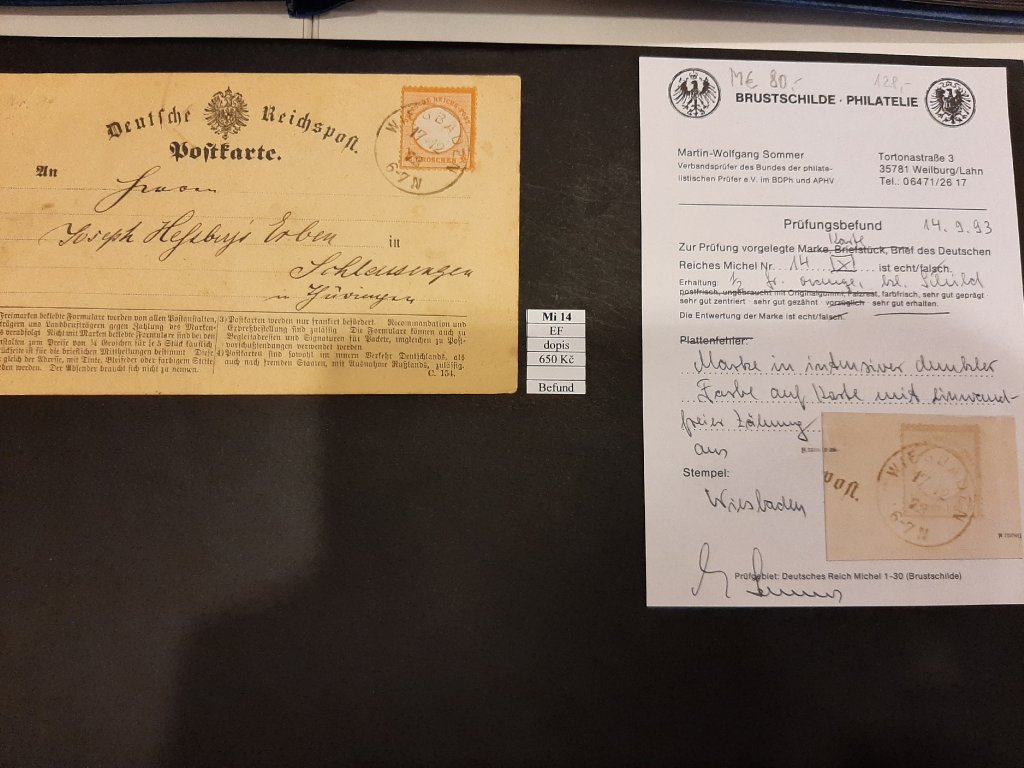 Deutsche Reichspost.
Postkarte.
An
Herrn
Joseph Heßberg's Erben in
Schleusingen
in Thüringen
GROSCHEN
WIESBADEN
17 12
6-7 N
Formulare werden von allen Postanstalten,
trägern und Landbriefträgern gegen Zahlung des Marken-
verabfolgt Nicht mit Marken beklebte Formulare sind bei den
nstalten zum Preise von ¼ Groschen für je 5 Stück käuflich
Rückseite ist für die brieflichen Mittheilungen bestimmt Diese
gleich der Adresse, mit Tinte, Bleifeder oder farbigem Stifte
werden. Der Absender braucht sich nicht zu nennen.
3) Postkarten werden nur frankirt befördert. Recommandation und
Expreßbestellung sind zulässig. Die Formulare können auch zu
Begleitadressen und Signaturen für Packete, ungleichen zu Post-
vorschußsendungen verwendet werden.
4) Postkarten sind sowohl im innern Verkehr Deutschlands, als
auch nach fremden Staaten, mit Ausnahme Rußlands, zulässig.
C. 154.
Mi 14
EF
dopis
650 Kč
Befund
M€ 80.-
128,-
BRUSTSCHILDE · PHILATELIE
Martin-Wolfgang Sommer
Verbandsprüfer des Bundes der philate-
listischen Prüfer e.V. im BDPh und APHV
Tortonastraße 3
35781 Weilburg/Lahn
Tel.: 06471/26 17
Prüfungsbefund 14.9.93
Karte
Zur Prüfung vorgelegte Marke, Briefstück, Brief des Deutschen
Reiches Michel Nr. 14 ist echt/falsch.
Erhaltung: ½ Gr. orange, kl. Schild
postfrisch, ungebraucht mit Originalgummi, Falzrest, farbfrisch, sehr gut geprägt
sehr gut zentriert · sehr gut gezähnt · vorzüglich · sehr gut erhalten.
Die Entwertung der Marke ist echt/falsch.
Plattenfehler:
Marke in intensiver dunkler
Farbe auf Karte mit einwand-
freier Zähnung
aus
Stempel:
Wiesbaden
post.
WIESBADEN
17 12
6-7 N
Prüfgebiet: Deutsches Reich Michel 1-30 (Brustschilde)